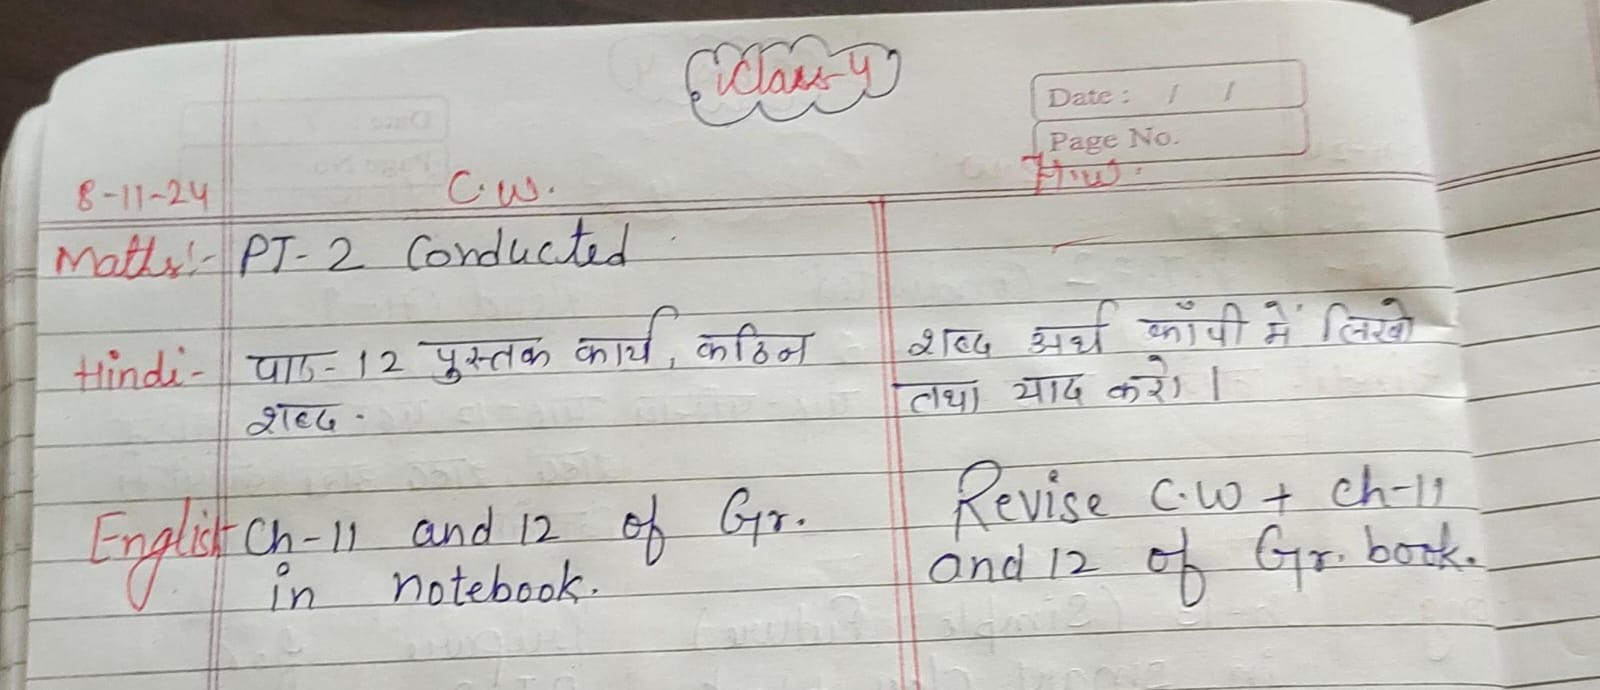 Class-4
Date: / /
Page No.
8-11-24 C.W. H.W.
Maths:- PT-2 Conducted -
Hindi- पाठ-12 पुस्तक कार्य, कठिन शब्द अर्थ कॉपी में लिखो
शब्द. तथा याद करो।
English- Ch-11 and 12 of Gr. Revise C.W + Ch-11
in notebook. and 12 of Gr. book.